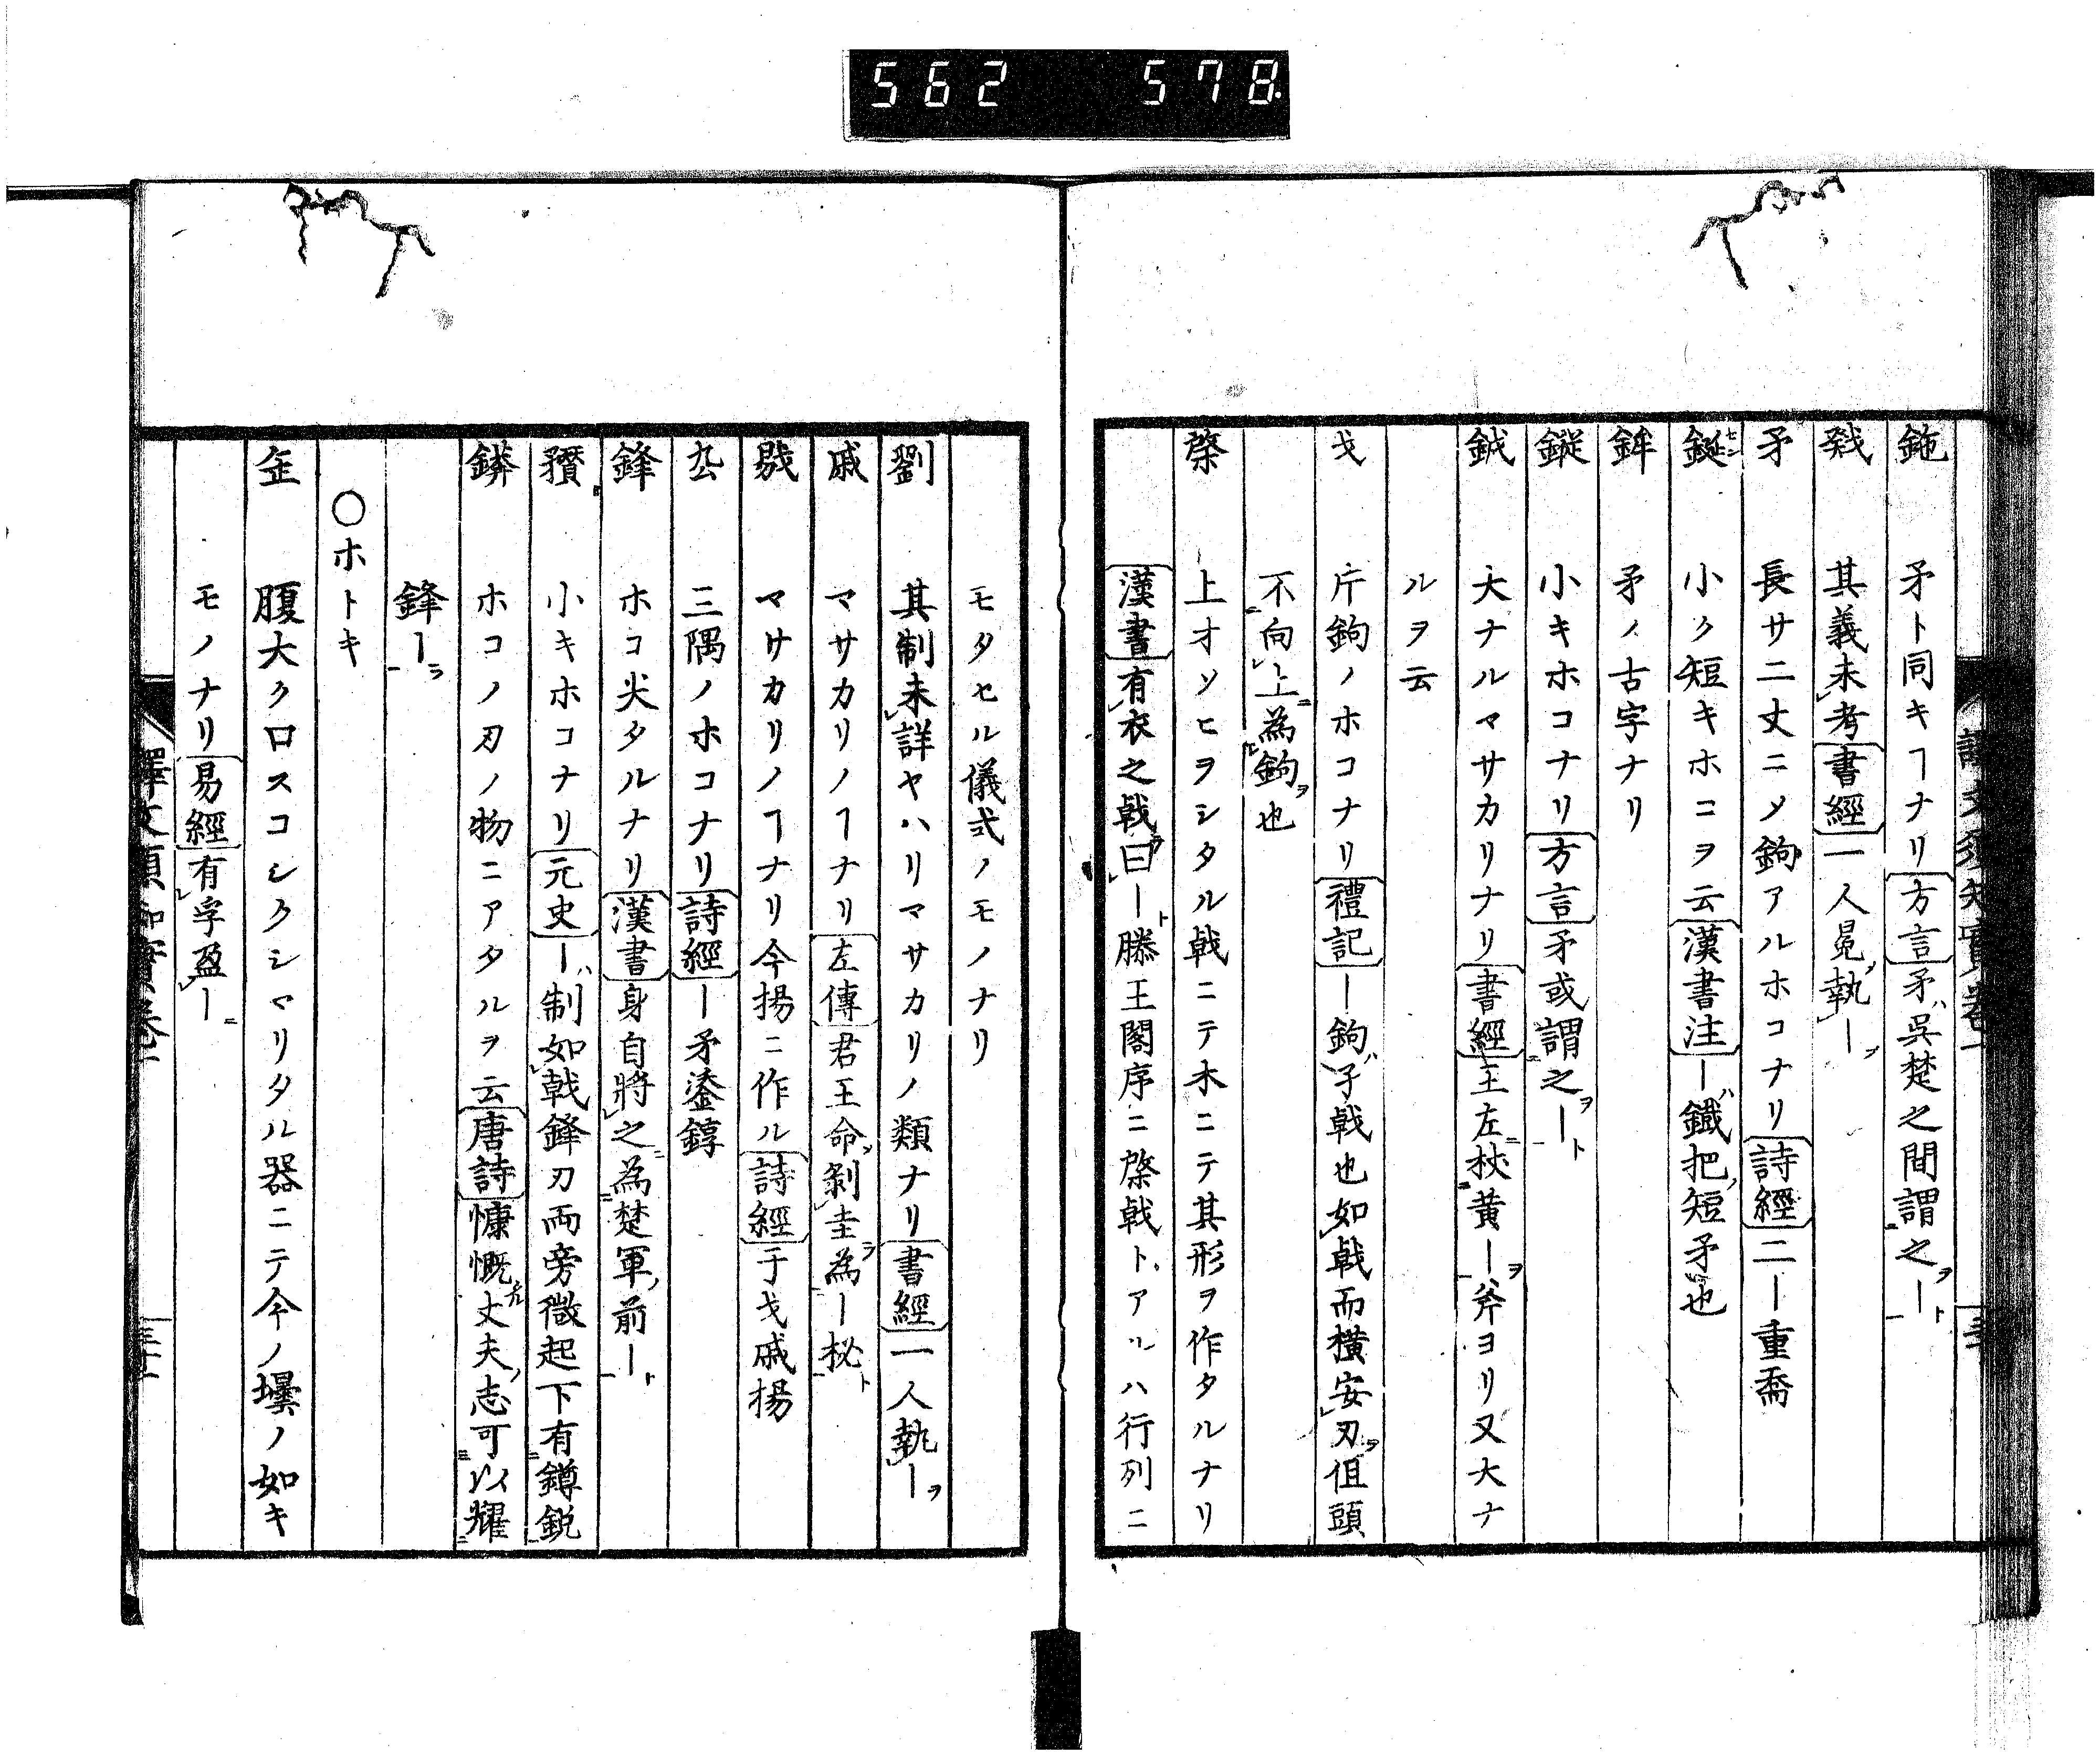 562 578
鉇 矛ト同キヿナリ方言矛ハ呉楚之間謂之ヲ―ト
戣 其義未考書經一人冕執―ヲ
矛 長サ二丈ニメ鉤アルホコナリ詩經二―重喬
鋋 小ク短キホコヲ云漢書注―ハ鐵把短矛也
鉾 矛ノ古字ナリ
鏦 小キホコナリ方言矛或謂之ヲ―ト
鉞 大ナルマサカリナリ書經王左杖黄―ヲ斧ヨリ又大ナ
ルヲ云
戈 片鉤ノホコナリ禮記―鉤ハ孑戟也如戟而横安刃ヲ但頭
不向上為鉤ヲ也
棨 上オソヒヲシタル戟ニテ木ニテ其形ヲ作タルナリ
漢書有衣之戟曰―ト滕王閣序ニ棨戟トアルハ行列ニ
モタセル儀式ノモノナリ
劉 其制未詳ヤハリマサカリノ類ナリ書經一人執―ヲ
戚 マサカリノヿナリ左傳君王命剝圭ヲ為―柲ト
戭 マサカリノヿナリ今揚ニ作ル詩經于戈戚揚
厹 三隅ノホコナリ詩經―矛鋈錞
鋒 ホコ尖タルナリ漢書身自將之為楚軍ノ前―ト
矠 小キホコナリ元史―ハ制如戟鋒刃兩旁微起下有鐏鋭
鏻 ホコノ刃ノ物ニアタルヲ云唐詩慷慨丈夫ノ志可以耀
鋒―ヲ
○ホトキ
缶 腹大ク口スコシクシマリタル器ニテ今ノ壜ノ如キ
モノナリ易經有孚盈―
譯文須知實卷一